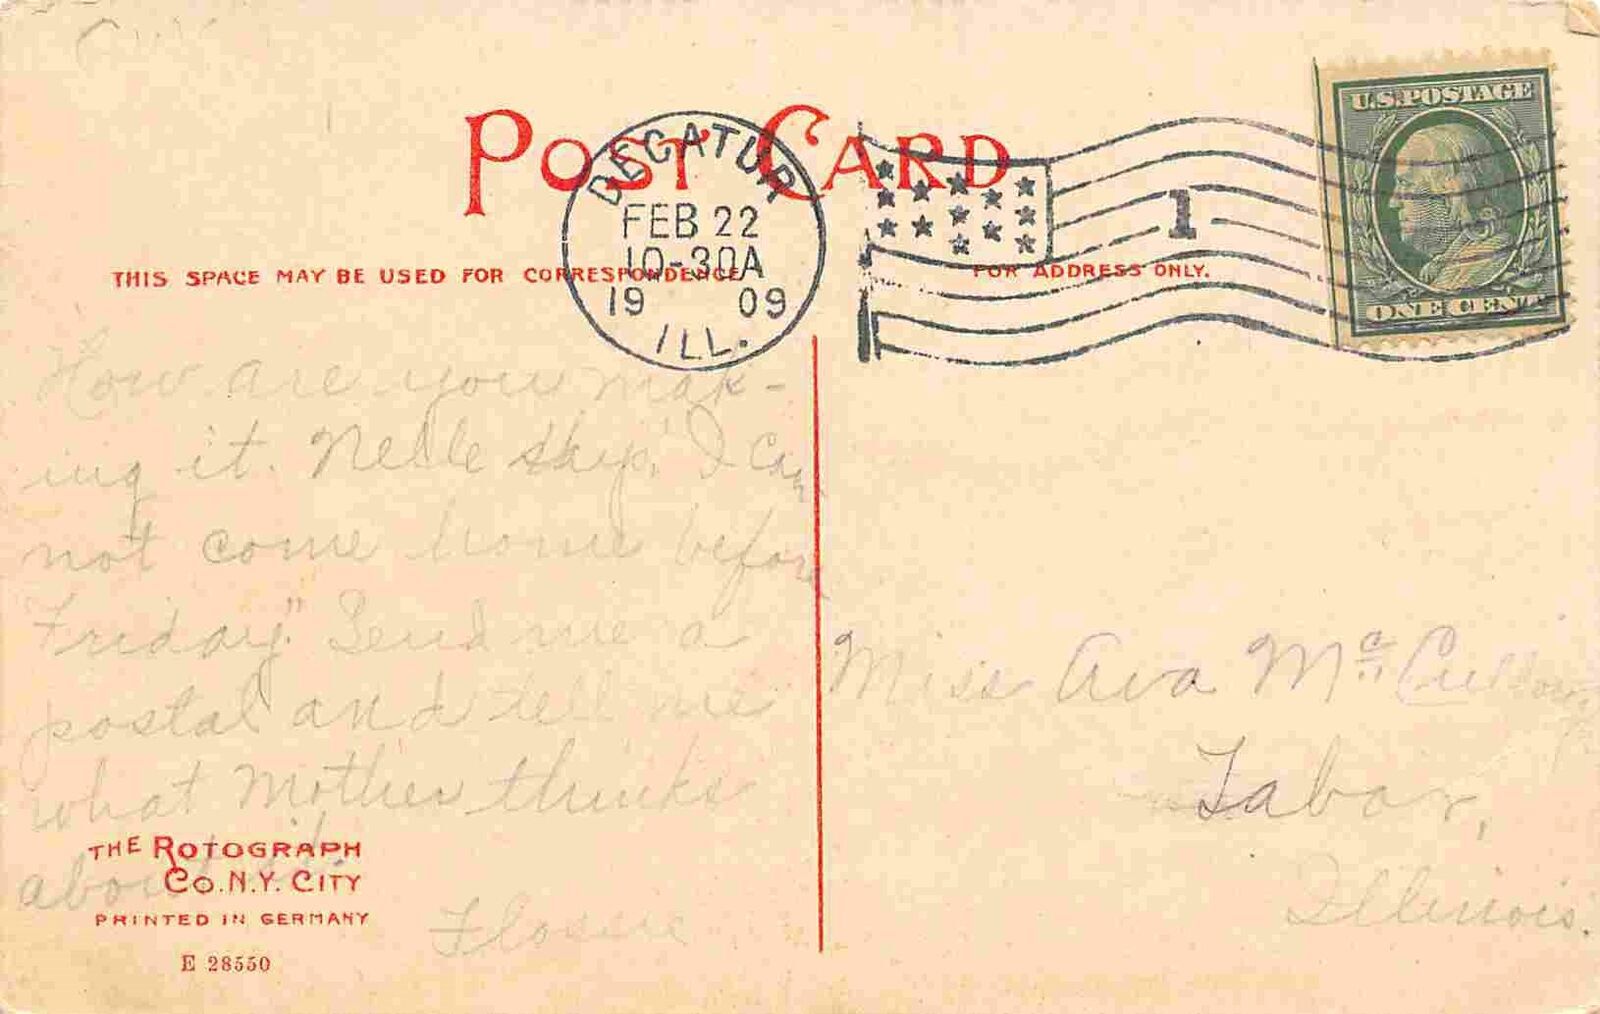 POST CARD
DECATUR
FEB 22
10-30A
19 09
ILL.
1
U.S. POSTAGE
ONE CENT
THIS SPACE MAY BE USED FOR CORRESPONDENCE
FOR ADDRESS ONLY.
How are you mak-
ing it. Nelle I can
not come home before
Friday." Send me a
postal and tell me
what Mother thinks
about it.
Miss Ava Mc
Tabor,
Illinois.
THE ROTOGRAPH
CO. N.Y. CITY
PRINTED IN GERMANY
E 28550